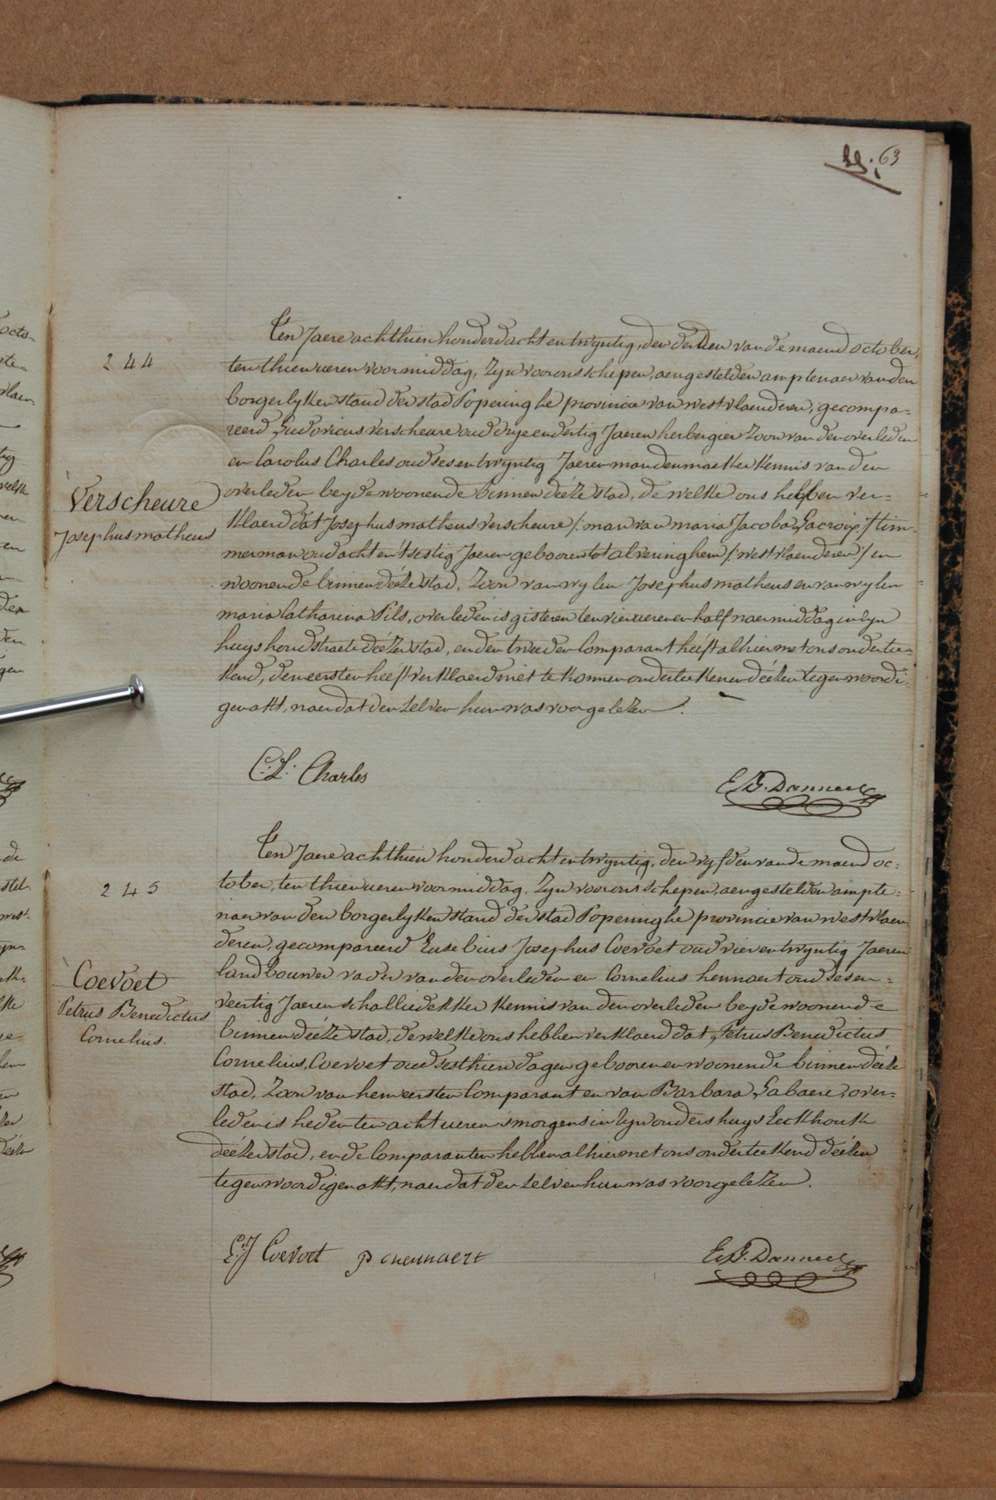 63
244
Verscheure
Josephus matheus
Ten Jaere achthien honderd acht en twyntig, den derden van de maend october,
ten thien ueren voormiddag, Zyn voor ons schepen, aengestelden amptenaer van den
borgerlyken stand der stad Poperinghe provincie van westvlaenderen, gecompa-
reerd Ludovicus verscheure oud dryendertig Jaeren herbergier Zoon van den overleden
en Carolus Charles oud sesentwyntig Jaeren mandenmaeker kennis van den
overleden beyde woonende binnen déeze stad, de welke ons hebben ver-
klaerd dat Josephus matheus verscheure /: man van maria Jacoba Lacroix :/ tim-
merman oud acht en 't sestig Jaeren gebooren tot alveringhem /:westvlaenderen:/ en
woonende binnen déeze stad, Zoon van wylen Josephus matheus en van wylen
maria Catharina Pils, overleden is gisteren ten vier ueren en half naermiddag in zyn
huys houdstraete déezer stad, en den tweeden Comparant héeft alhier met ons onderte-
kend, den eersten héeft verklaerd niet te konnen onderteekenen déezen tegenwoordi-
gen akt, naer dat den zelven hun was voorgelezen.
C: L: Charles
E. B. Danneel
245
Coevoet
Petrus Benedictus
Cornelius.
Ten Jaere achthien honderd acht en twyntig, den vyfden van de maend oc-
tober, ten thien ueren voormiddag, Zyn voor ons schepen, aengestelden ampte-
naer van den borgerlyken stand der stad Poperinghe provincie van westvlaen-
deren, gecompareerd Eusebius Josephus Coevoet oud vier en twyntig Jaeren
landbouwer vader van den overleden en Cornelius hennaert oud sesen-
veertig Jaeren schalliedekker kennis van den overleden beyde woonende
binnen déeze stad, de welke ons hebben verklaerd dat Petrus Benedictus
Cornelius Coevoet oud sesthien dagen gebooren en woonende binnen déeze
stad, Zoon van hem eersten Comparant en van Barbara Labaere, over-
leden is heden ten acht ueren smorgens in zyn ouders huys Eeckhoutk
déezer stad, en de Comparanten hebben alhier met ons onderteekend déezen
tegenwoordigen akt, naer dat den zelven hun was voorgelezen.
E J Coevoet P C hennaert
E. B. Danneel